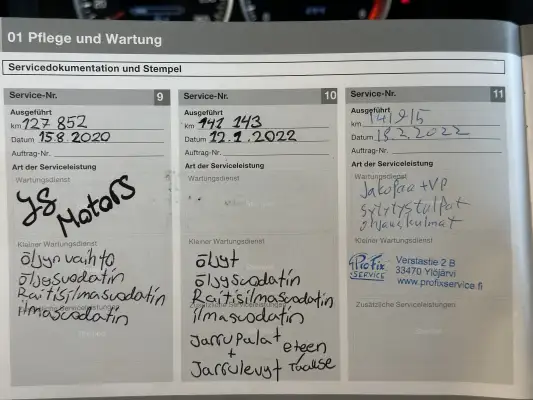 01 Pflege und Wartung
Servicedokumentation und Stempel
Service-Nr. 9
Ausgeführt
km 127 852
Datum 15.8.2020
Auftrag-Nr.
Art der Serviceleistung
Wartungsdienst
JS Motors
Kleiner Wartungsdienst
öljynvaihto
öljysuodatin
Raitisilmasuodatin
Zusätzliche Serviceleistungen
ilmasuodatin
Service-Nr. 10
Ausgeführt
km 141 143
Datum 12.1.2022
Auftrag-Nr.
Art der Serviceleistung
Wartungsdienst
Kleiner Wartungsdienst
öljyt
öljysuodatin
Raitisilmasuodatin
Zusätzliche Serviceleistungen
ilmasuodatin
Jarrupalat
+ eteen
Jarrulevyt Taakse
Service-Nr. 11
Ausgeführt
km 141915
Datum 18.2.2022
Auftrag-Nr.
Art der Serviceleistung
Wartungsdienst
Jakopää +VP
sytytystulpat
Kleiner Wartungsdienst
ProFix
SERVICE
Verstastie 2 B
33470 Ylöjärvi
www.profixservice.fi
Zusätzliche Serviceleistungen